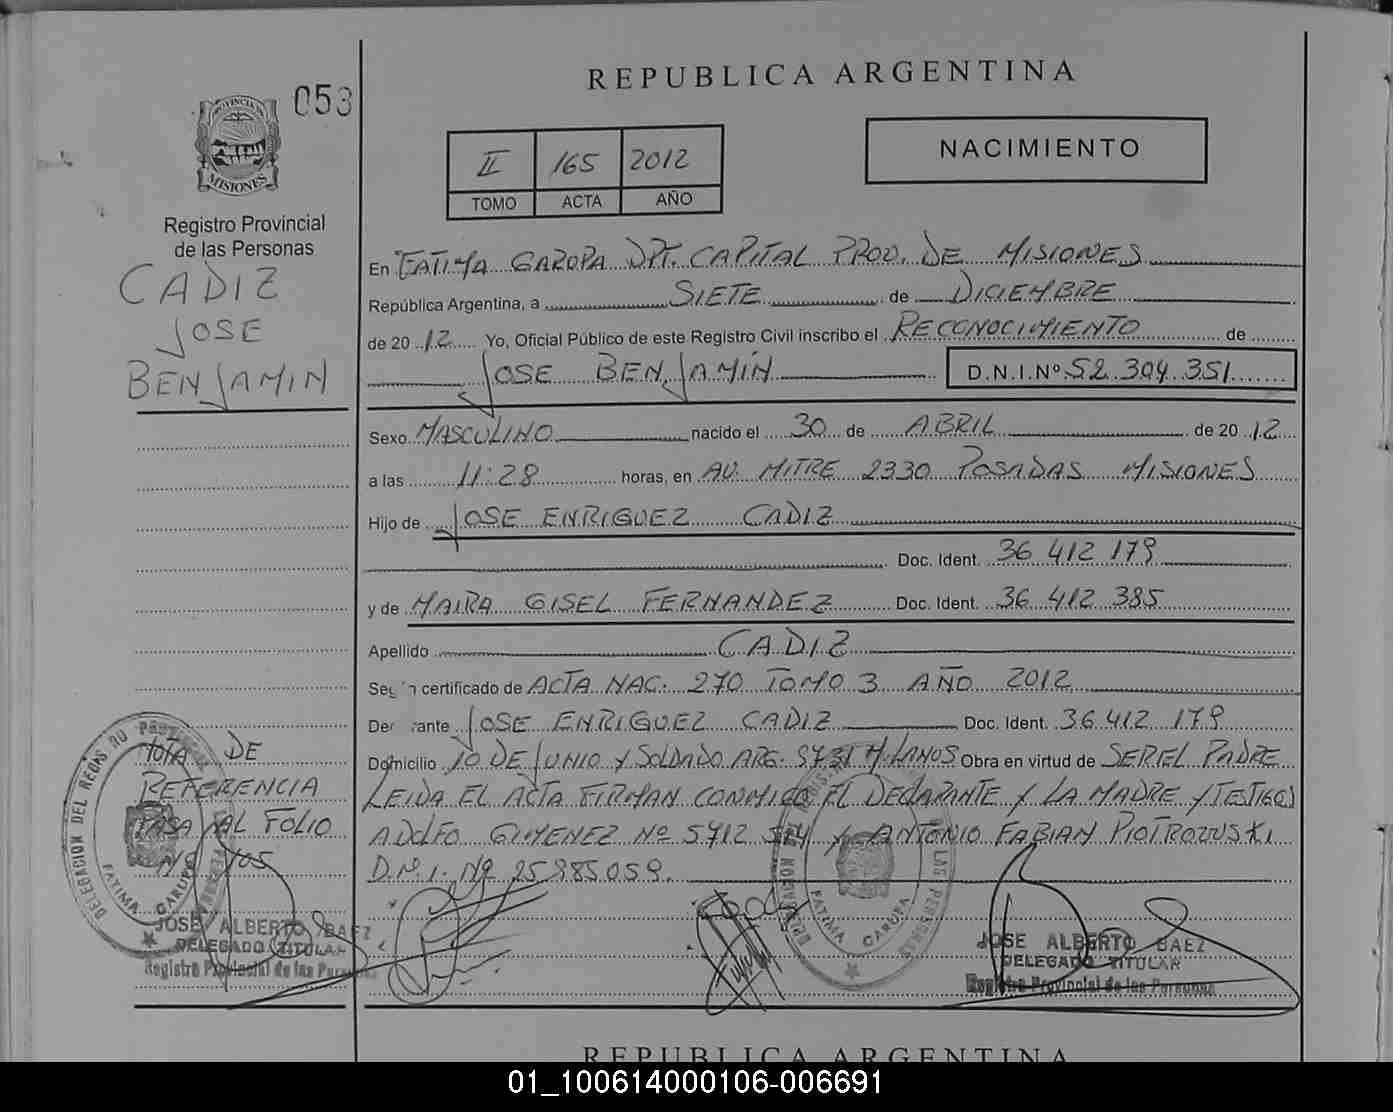 REPUBLICA ARGENTINA
053
PROVINCIA DE
MISIONES
II 165 2012
TOMO ACTA AÑO
NACIMIENTO
Registro Provincial
de las Personas
CADIZ
JOSE
BENJAMIN
En FATIMA GARUPA DPT. CAPITAL PROV. DE MISIONES
República Argentina, a SIETE de DICIEMBRE
de 20 12 Yo, Oficial Público de este Registro Civil inscribo el RECONOCIMIENTO de
JOSE BENJAMÍN D.N.I.Nº 52.304.351
Sexo MASCULINO nacido el 30 de ABRIL de 20 12
a las 11:28 horas, en AV. MITRE 2330 POSADAS MISIONES
Hijo de JOSE ENRIGUEZ CADIZ
Doc. Ident. 36 412 179
y de MAIRA GISEL FERNANDEZ Doc. Ident. 36 412 385
Apellido CADIZ
certificado de ACTA NAC. 270 TOMO 3 AÑO 2012
JOSE ENRIGUEZ CADIZ Doc. Ident. 36 412 179
Domicilio 10 DE JUNIO Y SOLDADO ARG. 5731 M. LANUS Obra en virtud de SER EL PADRE
LEIDA EL ACTA FIRMAN CONMIGO EL DECLARANTE Y LA MADRE Y TESTIGOS
ADOLFO GIMENEZ Nº 5712 Y ANTONIO FABIAN PIOTROWSKI
D.N.I. Nº 25985059.
NOTA DE
REFERENCIA
PASA AL FOLIO
Nº 105
DELEGACION DEL REGISTRO PROVINCIAL
FATIMA GARUPA
JOSE ALBERTO BAEZ
DELEGADO TITULAR
Registro Provincial de las Personas
DELEGACION DEL REGISTRO LAS PERSONAS
FATIMA GARUPA
JOSE ALBERTO BAEZ
DELEGADO TITULAR
Registro Provincial de las Personas
REPUBLICA ARGENTINA
01_100614000106-006691